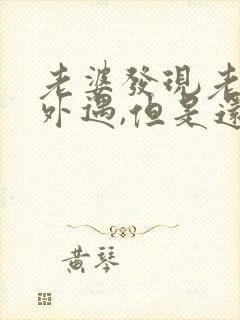 老婆發現老
外遇,但是還
黃琴